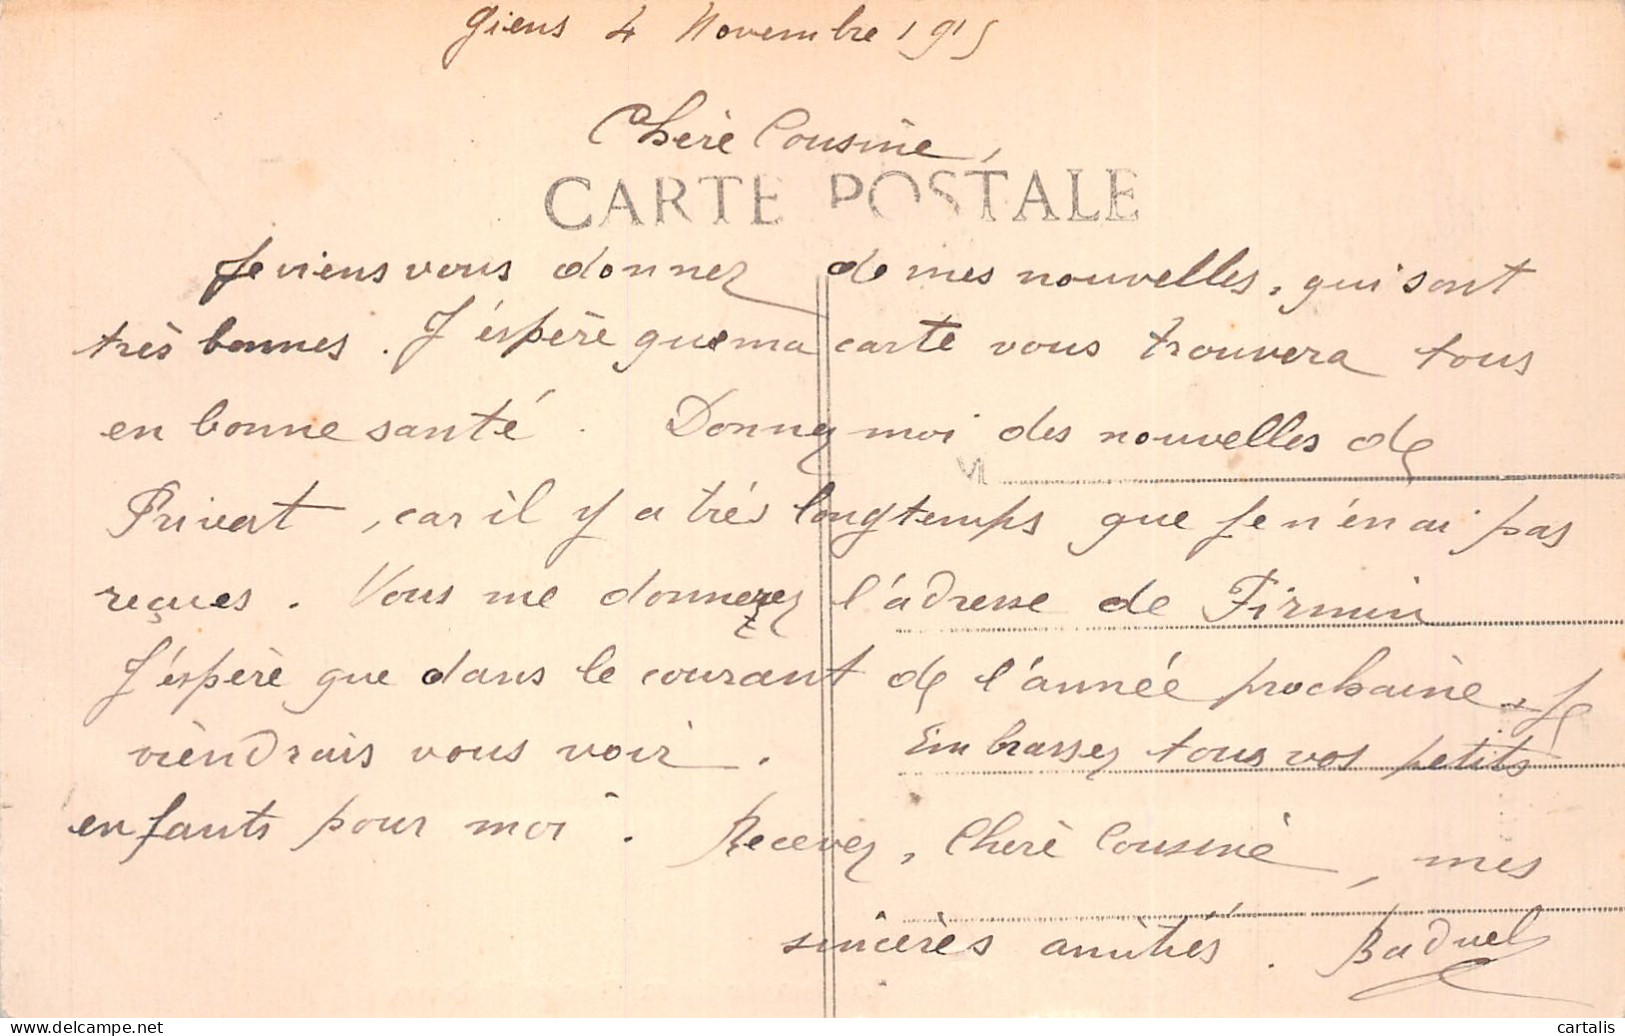 Giens 4 Novembre 1915
Chère Cousine,
CARTE POSTALE
Je viens vous donner de mes nouvelles, qui sont
très bonnes. J'éspère que ma carte vous trouvera tous
en bonne santé. Donnez moi des nouvelles de
Privat, car il y a très longtemps que je n'en ai pas
reçues. Vous me donnerez l'adresse de Firmin
J'éspère que dans le courant de l'année prochaine, je
viendrais vous voir. Embrassez tous vos petits
enfants pour moi. Recevez, Chère Cousine, mes
sincères amitiés. Baduel
delcampe.net
cartalis